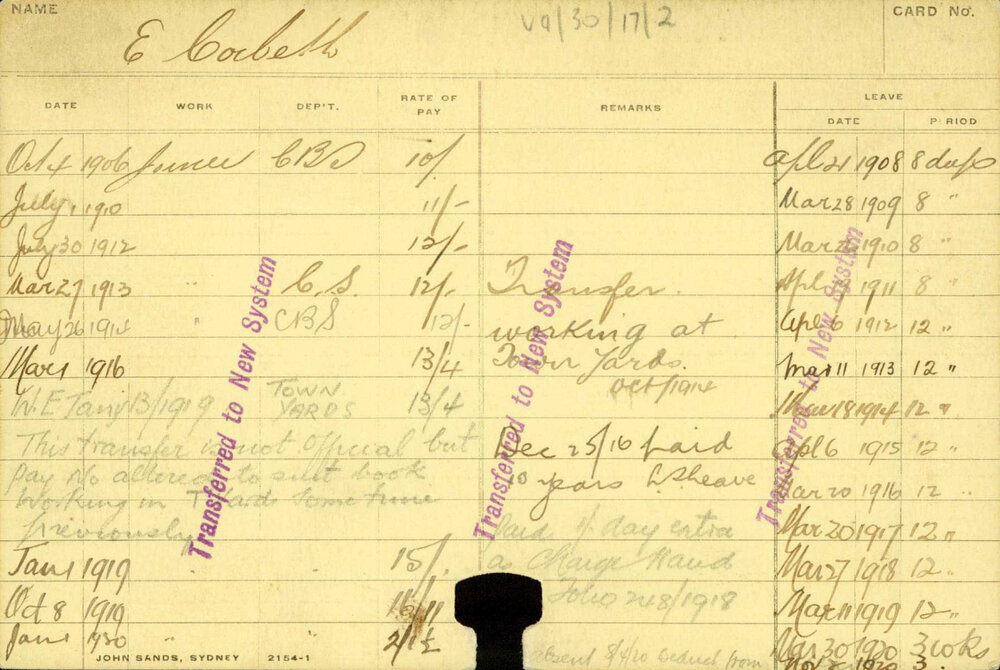 NAME
E Corbett
V9/30/17/2
CARD No.
DATE WORK DEP'T. RATE OF PAY REMARKS LEAVE
DATE PERIOD
Oct 4 1906 Joiner CBS 10/ Apl 21 1908 8 days
July 1 1910 11/- Mar 28 1909 8 "
July 30 1912 12/- Mar 1910 8 "
Mar 27 1913 " C.S. 12/- Transfer. Apl 1911 8 "
May 26 1914 " CBS 12/- working at Apl 6 1912 12 "
Mar 1 1916 13/4 Town Yards. Mar 11 1913 12 "
Oct/1914
W.E Jany 13/1919 TOWN YARDS 13/4 Mar 18 1914 12 "
This transfer is not Official but Dec 25/16 paid Apl 6 1915 12 "
Pay No altered to suit book 10 years L Sleave Mar 20 1916 12 "
Working in T Yards some time
previously Paid 1/- day extra Mar 20 1917 12 "
Jan 1 1919 " " 15/. as Charge Hand Mar 27 1918 12 "
Oct 8 1919 " " Folio 248/1918 Mar 11 1919 12 "
Jan 1 1920 " " 21/2½ Mar 30 1920 3 wks
absent deduct from Nov 1920 3
Transferred to New System
Transferred to New System
Transferred to New System
JOHN SANDS, SYDNEY 2154-1